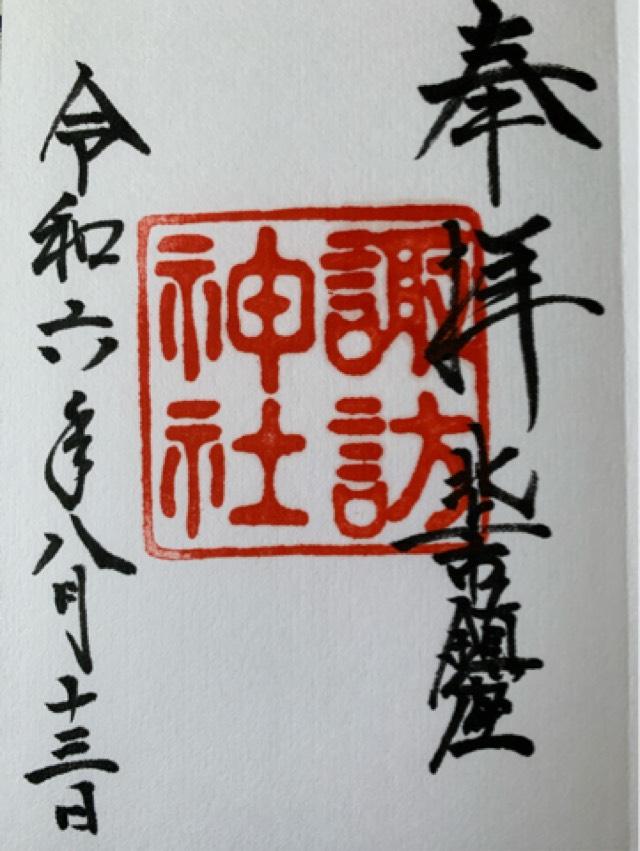 奉拝 北上市鎮座
諏訪
神社
令和六年八月十三日